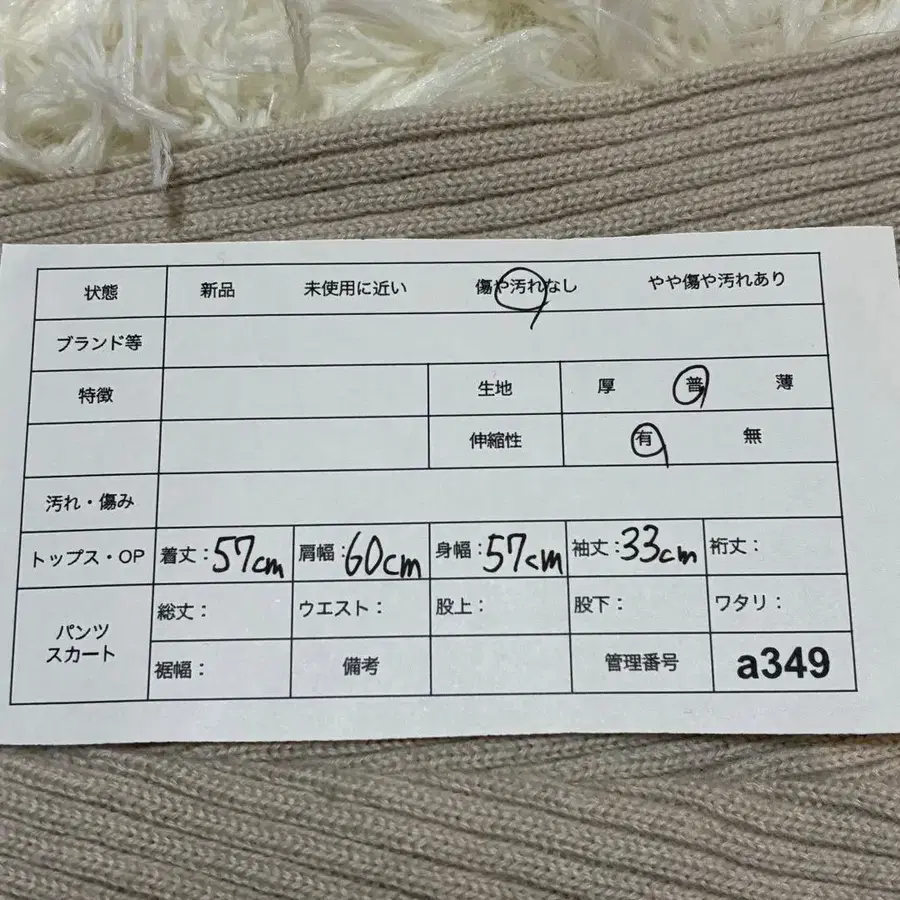 状態 新品 未使用に近い 傷や汚れなし やや傷や汚れあり
ブランド等
特徴 生地 厚 普 薄
伸縮性 有 無
汚れ・傷み
トップス・OP 着丈：57cm 肩幅：60cm 身幅：57cm 袖丈：33cm 裄丈：
パンツ スカート 総丈： ウエスト： 股上： 股下： ワタリ：
裾幅： 備考 管理番号 a349